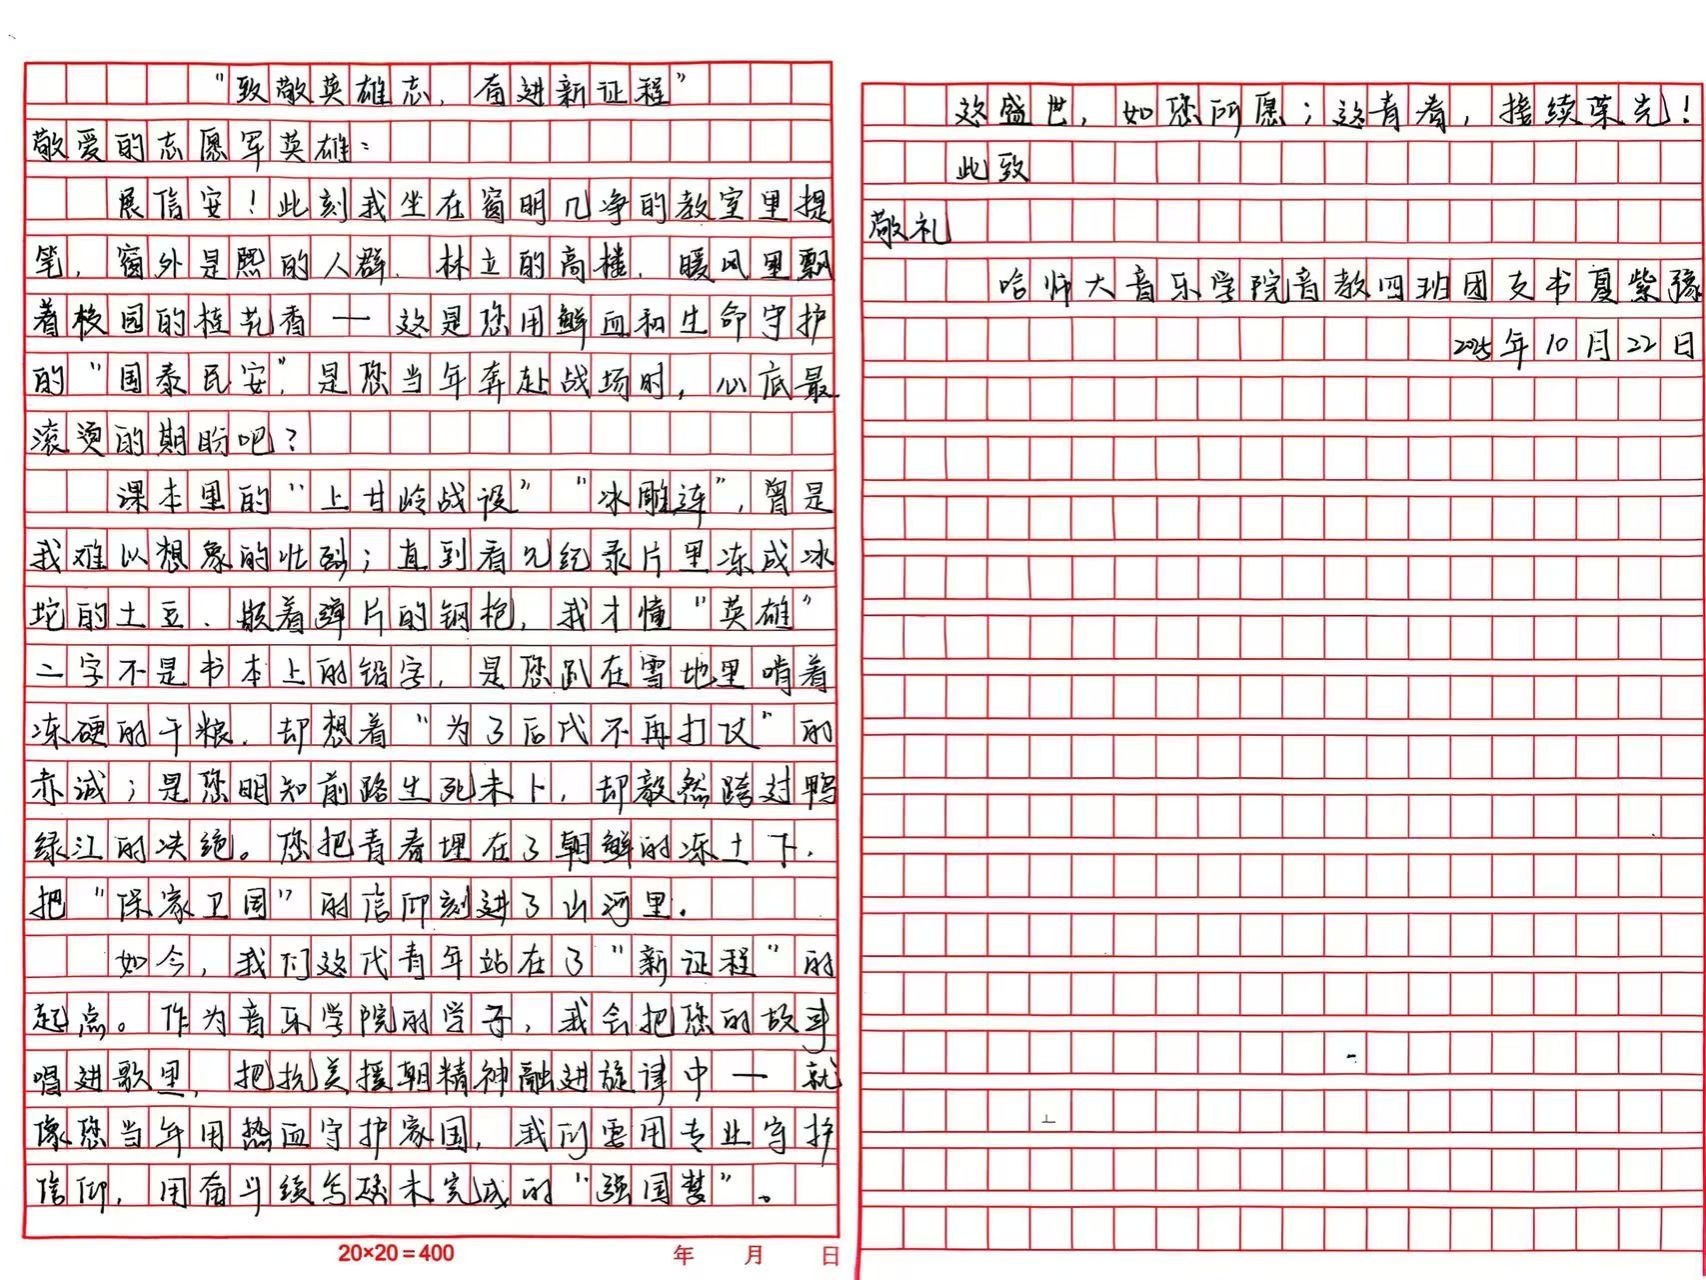 “致敬英雄志，奋进新征程”
敬爱的志愿军英雄：
展信安！此刻我坐在窗明几净的教室里提
笔，窗外是熙的人群、林立的高楼，暖风里飘
着校园的桂花香一这是您用鲜血和生命守护
的“国泰民安”，是您当年奔赴战场时，心底最
滚烫的期盼吧？
课本里的“上甘岭战役”“冰雕连”，曾是
我难以想象的壮烈；直到看见纪录片里冻成冰
坨的土豆、嵌着弹片的钢枪，我才懂“英雄”
二字不是书本上的铅字，是您趴在雪地里啃着
冻硬的干粮，却想着“为了后代不再打仗”的
赤诚；是您明知前路生死未卜，却毅然跨过鸭
绿江的决绝。您把青春埋在了朝鲜的冻土下，
把“保家卫国”的信仰刻进了山河里。
如今，我们这代青年站在了“新征程”的
起点。作为音乐学院的学子，我会把您的故事
唱进歌里，把抗美援朝精神融进旋律中一就
像您当年用热血守护家国，我们要用专业守护
信仰，用奋斗续写您未完成的“强国梦”。
这盛世，如您所愿；这青春，接续荣光！
此致
敬礼
哈师大音乐学院音教四班团支书夏紫豫
2025年10月22日
20×20=400 年 月 日